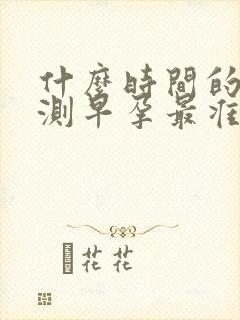 什麼時間的
測早孕最准
花花